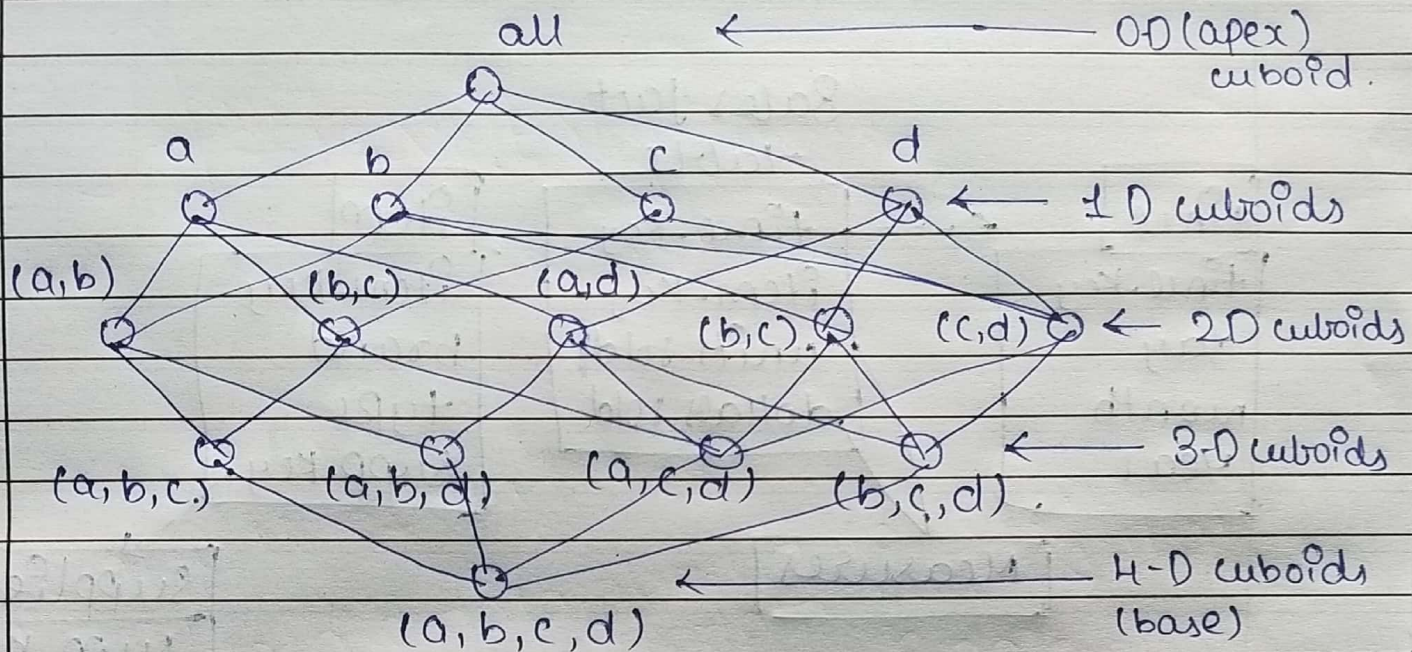 all ← 0-D (apex)
cuboid.
a b c d
← 1D cuboids
(a,b) (b,c) (a,d)
(b,c) (c,d) ← 2D cuboids
← 3-D cuboids
(a,b,c) (a,b,d) (a,c,d) (b,c,d)
← 4-D cuboids
(a,b,c,d) (base)